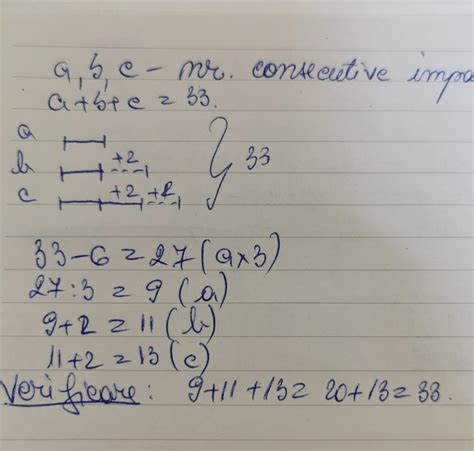 a, b, c - nr. consecutive impa
a+b+c = 33.
a
b +2
c +2 +2
33
33-6 = 27 (a×3)
27:3 = 9 (a)
9+2 = 11 (b)
11+2 = 13 (c)
Verificare: 9+11+13= 20+13=33.